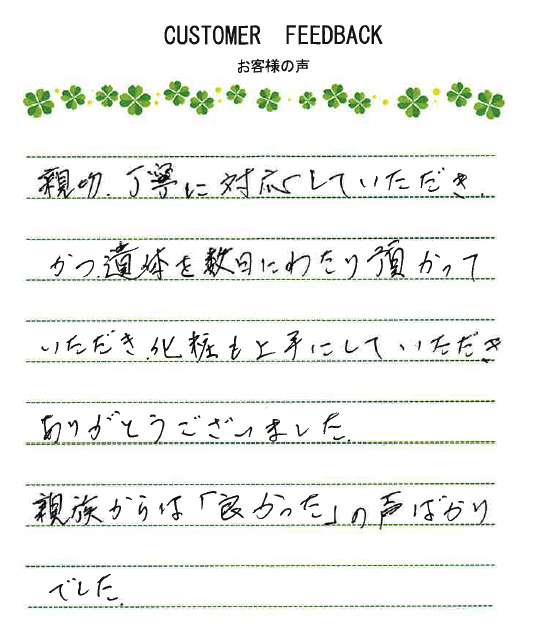 CUSTOMER FEEDBACK
お客様の声
親切、丁寧に対応していただき、
かつ遺体を数日にわたり預かって
いただき、化粧も上手にしていただき
ありがとうございました。
親族からは「良かった」の声ばかり
でした。